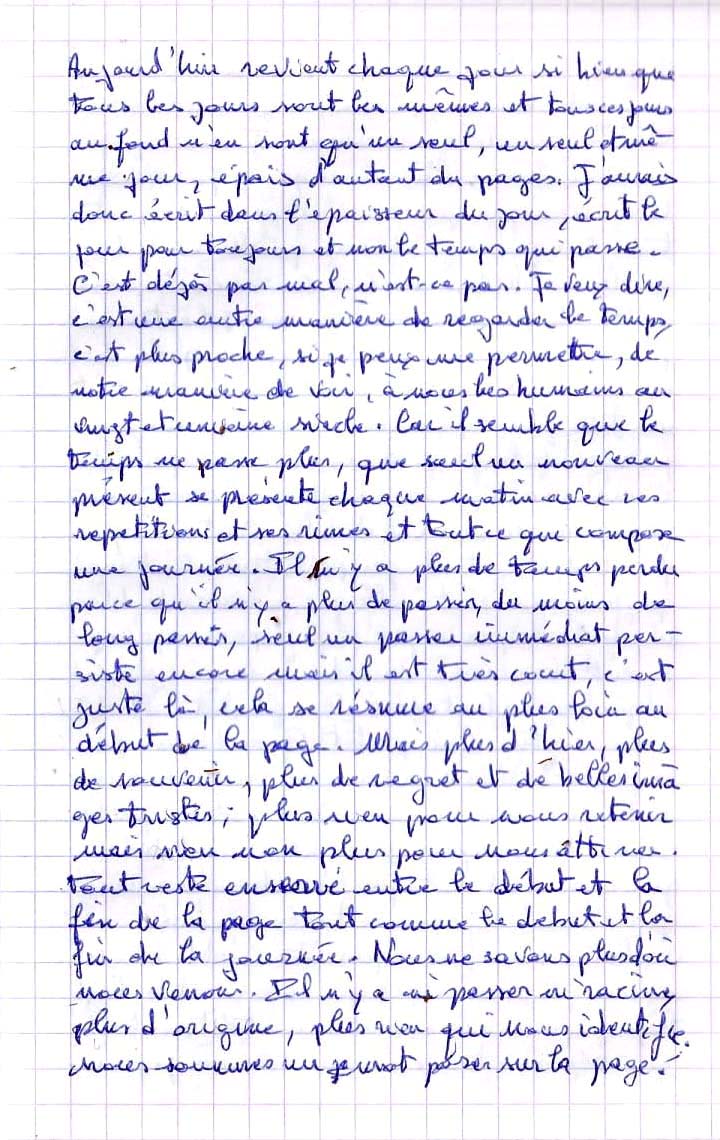 Aujourd'hui revient chaque jour si bien que
tous les jours sont les mêmes et tous ces jours
au fond n'en sont qu'un seul, un seul et mê-
me jour, épais d'autant du pages. J'aurais
donc écrit dans l'épaisseur du jour, écrit le
jour pour toujours et non le temps qui passe.
C'est déjà pas mal, n'est-ce pas. Je veux dire,
c'est une autre manière de regarder le temps,
c'est plus proche, si je peux me permettre, de
notre manière de voir, à nous les humains au
vingt et unième siècle. Car il semble que le
temps ne passe plus, que seul un nouveau
présent se présente chaque matin avec ses
repetitions et ses rimes et tout ce que compose
une journée. Il n'y a plus de temps perdu
parce qu'il n'y a plus de passés, du moins de
long passés, seul un passé immédiat per-
siste encore mais il est très court, c'est
juste là, cela se résume au plus loin au
début de la page. Mais plus d'hier, plus
de souvenir, plus de regret et de belles ima
ges tristes ; plus rien pour nous retenir
mais rien non plus pour nous attirer.
Tout reste enserré entre le début et la
fin de la page tout comme le debut et la
fin de la journée. Nous ne savons plus d'où
nous venons. Il n'y a ni passer ni racine,
plus d'origine, plus rien qui nous identifie.
Nous sommes un mot poser sur la page.